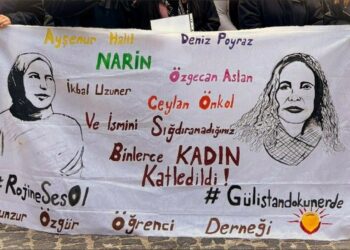 Ayşenur Halil Deniz Poyraz
NARİN Özgecan Aslan
İkbal Uzuner
Ceylan Önkol
Ve İsmini Sığdıramadığımız
Binlerce KADIN
Katledildi!
#RojineSesOl #Gülistandokunerde
unzur Özgür Öğrenci Derneği